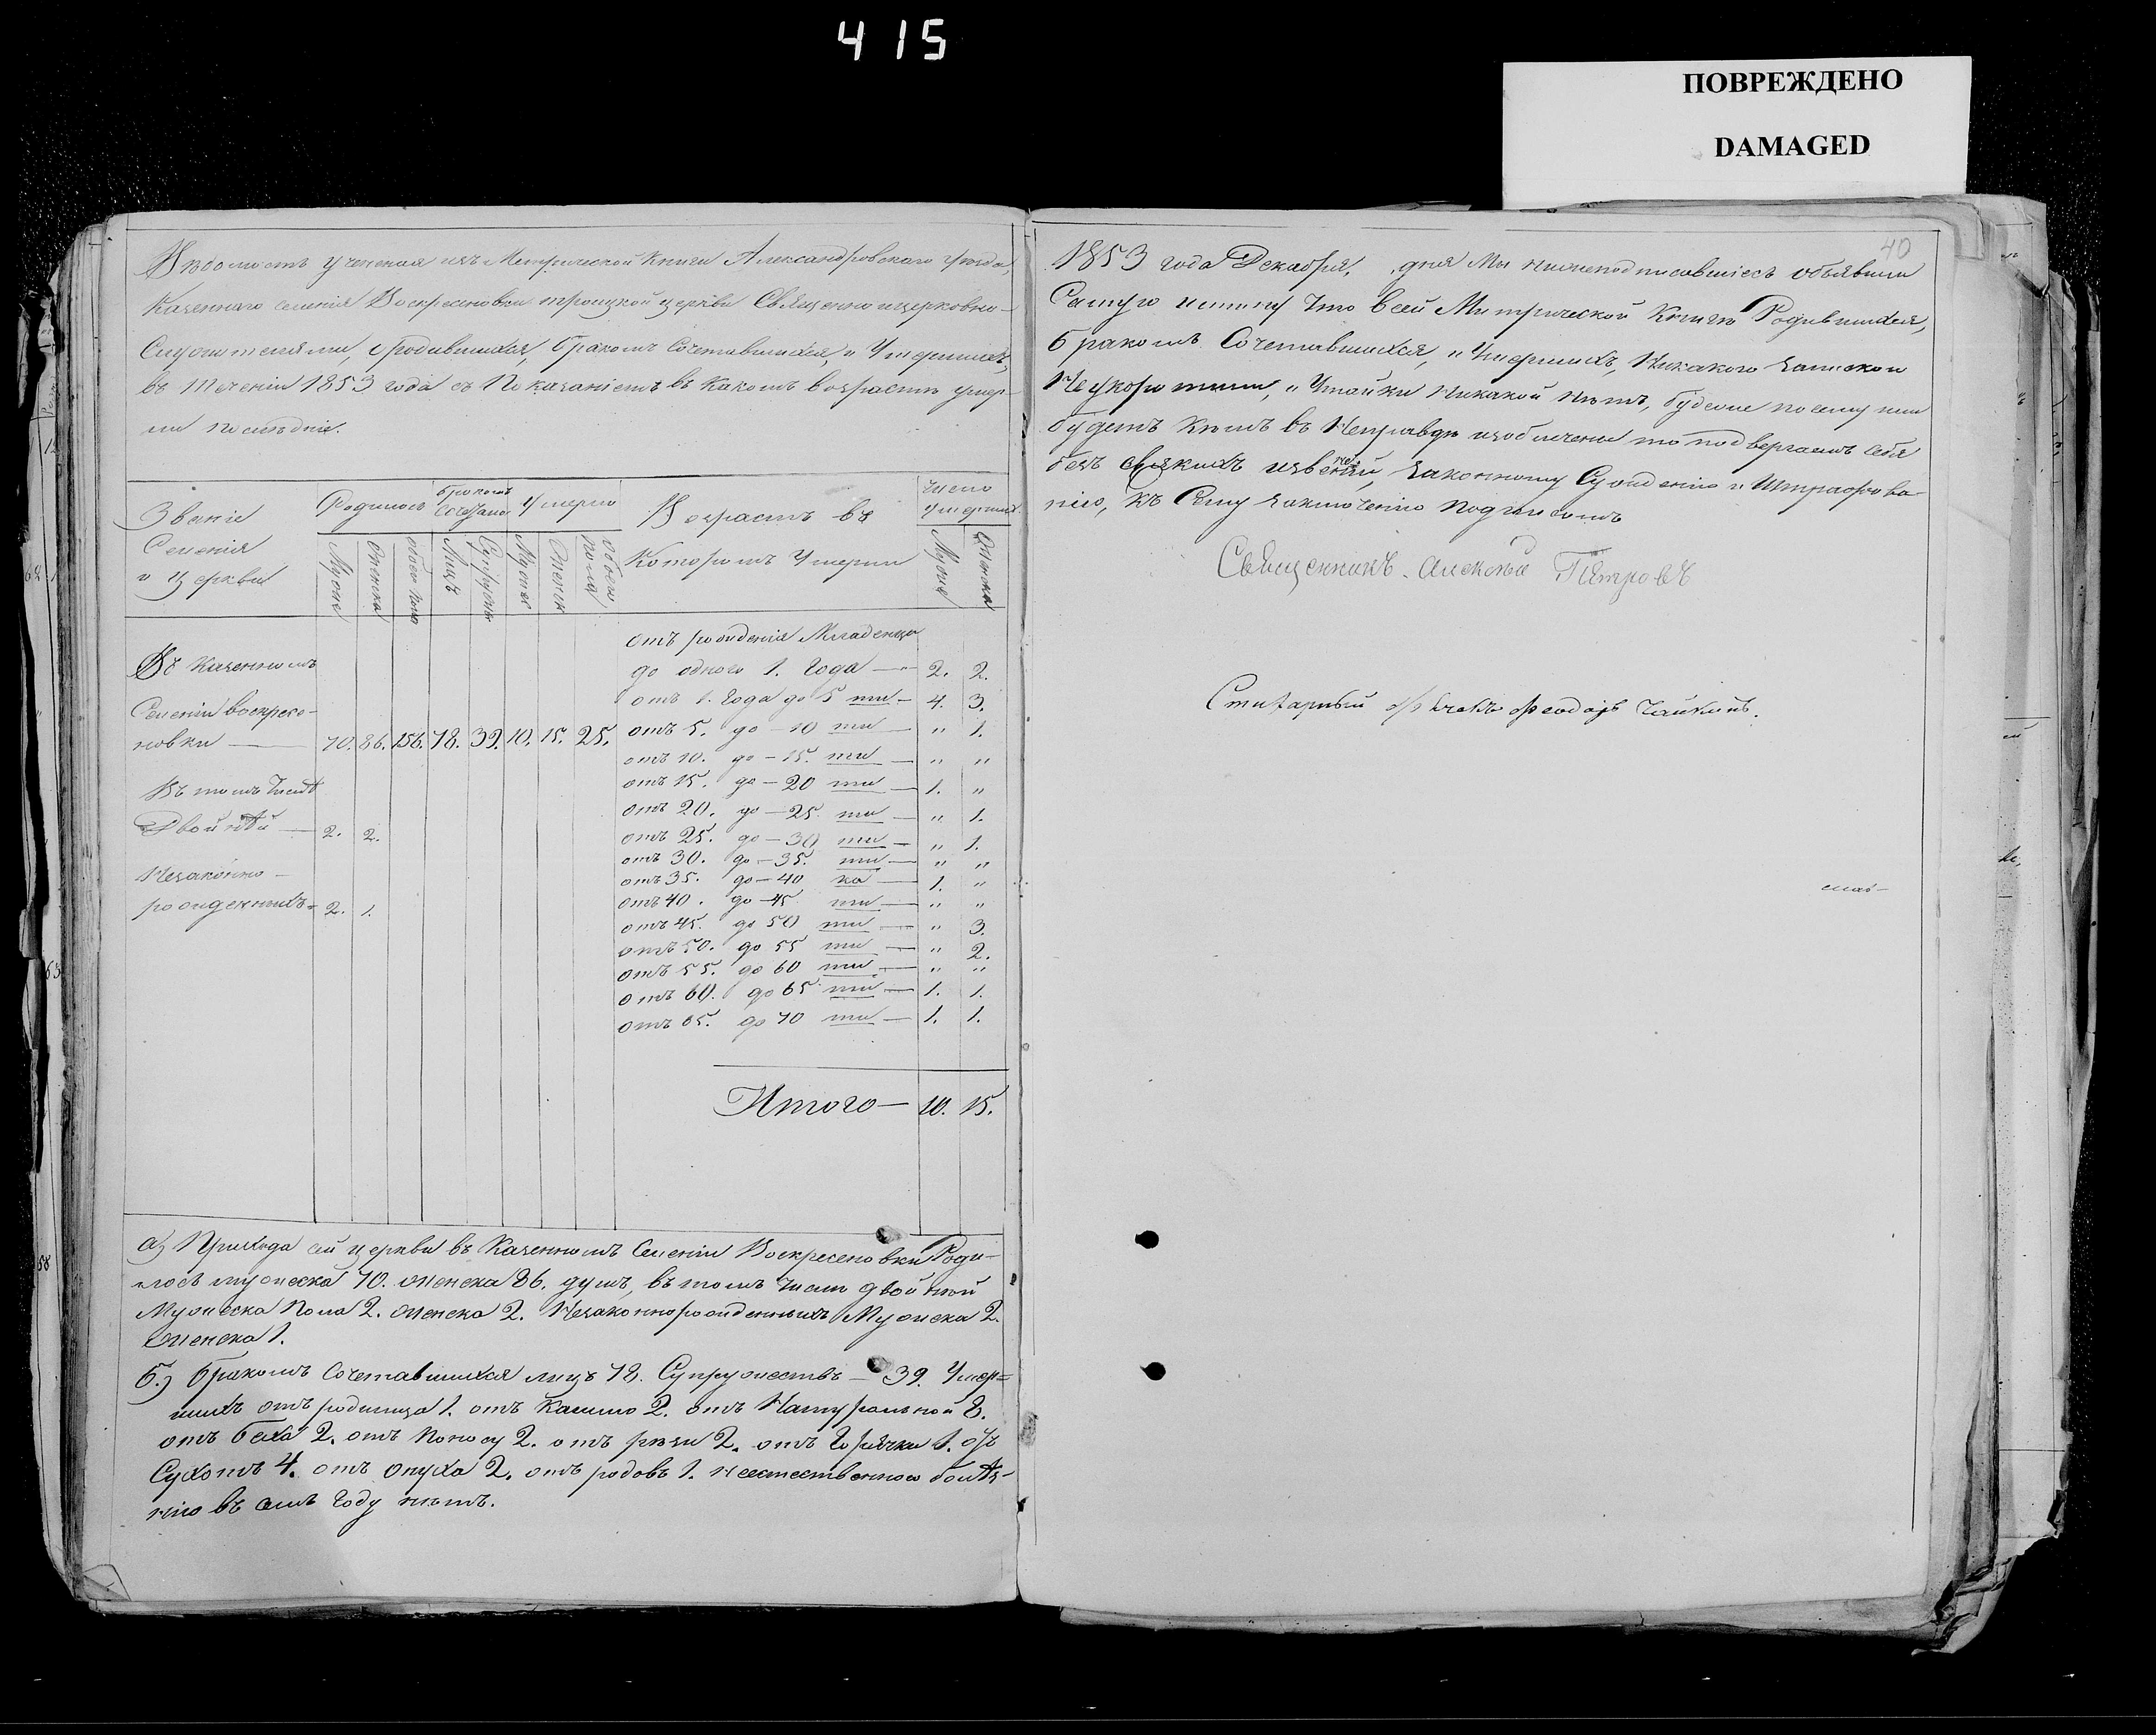 415
ПОВРЕЖДЕНО
DAMAGED
Вѣдомость учиненая изъ Метрической Книги Александровскаго уѣзда,
Казеннаго селенія Воскресеновки троицкой церкви Священно ицерковно-
Служителями, о родившихся, бракомъ Сочетавшихся, и Умершихъ,
въ теченіи 1853 года съ Показаніемъ въ Какомъ возрастѣ умер-
ли послѣдніе.
Званіе Селенія и Церкви
Родилось
Бракомъ Сочетано
Умерло
Возрастъ въ Которомъ Умерли
Число умершихъ
Муже Женска обоего пола Лицъ Супружн Мужес Женск обоего пола Мужеск Женска
отъ рожденія Младенца
Въ Казенномъ до одного 1. Года — 2. 2.
отъ 1. Года до 5 ти — 4. 3.
Селеніи Воскресе-
новки — 70. 86. 156. 78. 39. 10. 15. 25. отъ 5. до — 10 ти — " 1.
отъ 10. до — 15. ти — " "
Въ томъ Числѣ отъ 15. до — 20 ти — 1. "
отъ 20. до — 25. ти — " 1.
Двойнѣй — 2. 2. отъ 25. до — 30 ти — " 1.
отъ 30. до — 35. ти — " "
Незаконно- отъ 35. до — 40 ка — 1. "
рожденныхъ — 2. 1. отъ 40. до — 45 ти — " "
отъ 45. до 50 ти — " 3.
отъ 50. до 55 ти — " 2.
отъ 55. до 60 ти — " "
отъ 60. до 65 ти — 1. 1.
отъ 65. до 70 ти — 1. 1.
Итого — 10. 15.
а) Прихода сей церкви въ Казенномъ Селеніи Воскресеновки Роди-
лось мужеска 70. женска 86. душъ, въ томъ числѣ двойной
Мужеска пола 2. женска 2. Незаконнорожденныхъ Мужеска 2.
женска 1.
б.) бракомъ Сочетавшихся лицъ 78. Супружествъ — 39. Умер=
шихъ отъ родимца 1. отъ Кашлю 2. отъ Натуральной 8.
отъ 2. отъ поносу 2. отъ рѣзи 2. отъ Горячки 1. отъ
Сухотъ 4. отъ опуха 2. отъ родовъ 1. неестественною болѣз-
нію въ семъ Году нѣтъ.
40
1853 года Декабря, дня Мы нижеподписавшіесь объявили
Самую истину Что Всей Метрической Книгѣ Родившихся,
бракомъ Сочетавшихся, и Умершихъ, Никакого
и Утайки никакой нѣтъ, будеже посему
будетъ Кѣмъ въ Неправдѣ изобличени то подвергаемъ себя
безъ всякихъ извененій, законному Сужденію и Штрафова-
нію, къ Сему заключенію подписомъ
Священникъ Алексѣй Петровъ
Стихарный дьячекъ Ѳеодоръ Чайкинъ.